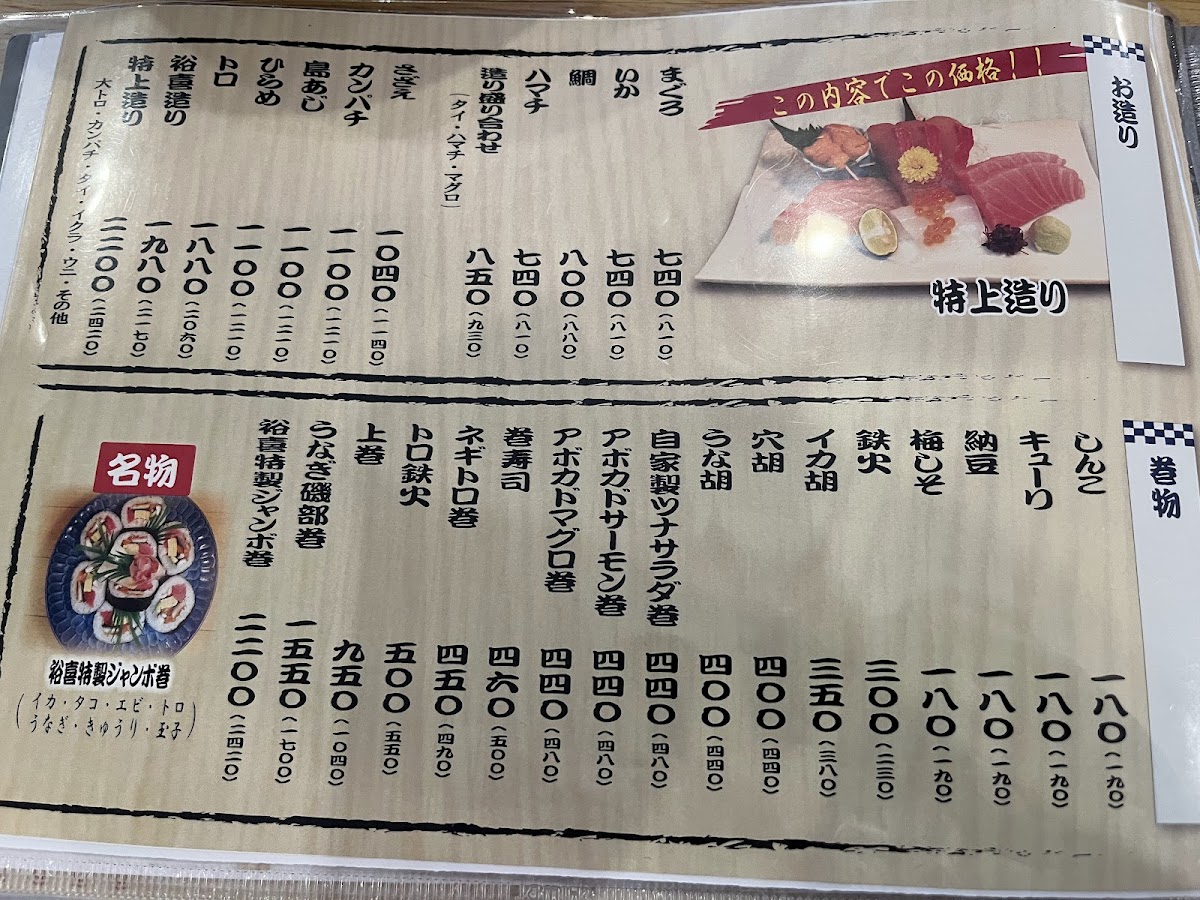 お造り
この内容でこの価格!!
特上造り
まぐろ 七四〇(八一〇)
いか 七四〇(八一〇)
鯛 八〇〇(八八〇)
ハマチ 七四〇(八一〇)
造り盛り合わせ 八五〇(九三〇)
(タイ・ハマチ・マグロ)
さざえ 一〇四〇(一一四〇)
カンパチ 一一〇〇(一二一〇)
島あじ 一一〇〇(一二一〇)
ひらめ 一一〇〇(一二一〇)
トロ 一八八〇(二〇六〇)
裕喜造り 一九八〇(二一七〇)
特上造り 二二〇〇(二四二〇)
大トロ・カンパチ・タイ・イクラ・ウニ・その他
巻物
しんこ 一八〇(一九〇)
キューリ 一八〇(一九〇)
納豆 一八〇(一九〇)
梅しそ 一八〇(一九〇)
鉄火 三〇〇(三三〇)
イカ胡 三五〇(三八〇)
穴胡 四〇〇(四四〇)
うな胡 四〇〇(四四〇)
自家製ツナサラダ巻 四四〇(四八〇)
アボカドサーモン巻 四四〇(四八〇)
アボカドマグロ巻 四四〇(四八〇)
巻寿司 四六〇(五〇〇)
ネギトロ巻 四五〇(四九〇)
トロ鉄火 五〇〇(五五〇)
上巻 九五〇(一〇四〇)
うなぎ磯部巻 一五五〇(一七〇〇)
裕喜特製ジャンボ巻 二二〇〇(二四二〇)
名物
裕喜特製ジャンボ巻
(イカ・タコ・エビ・トロ
うなぎ・きゅうり・玉子)